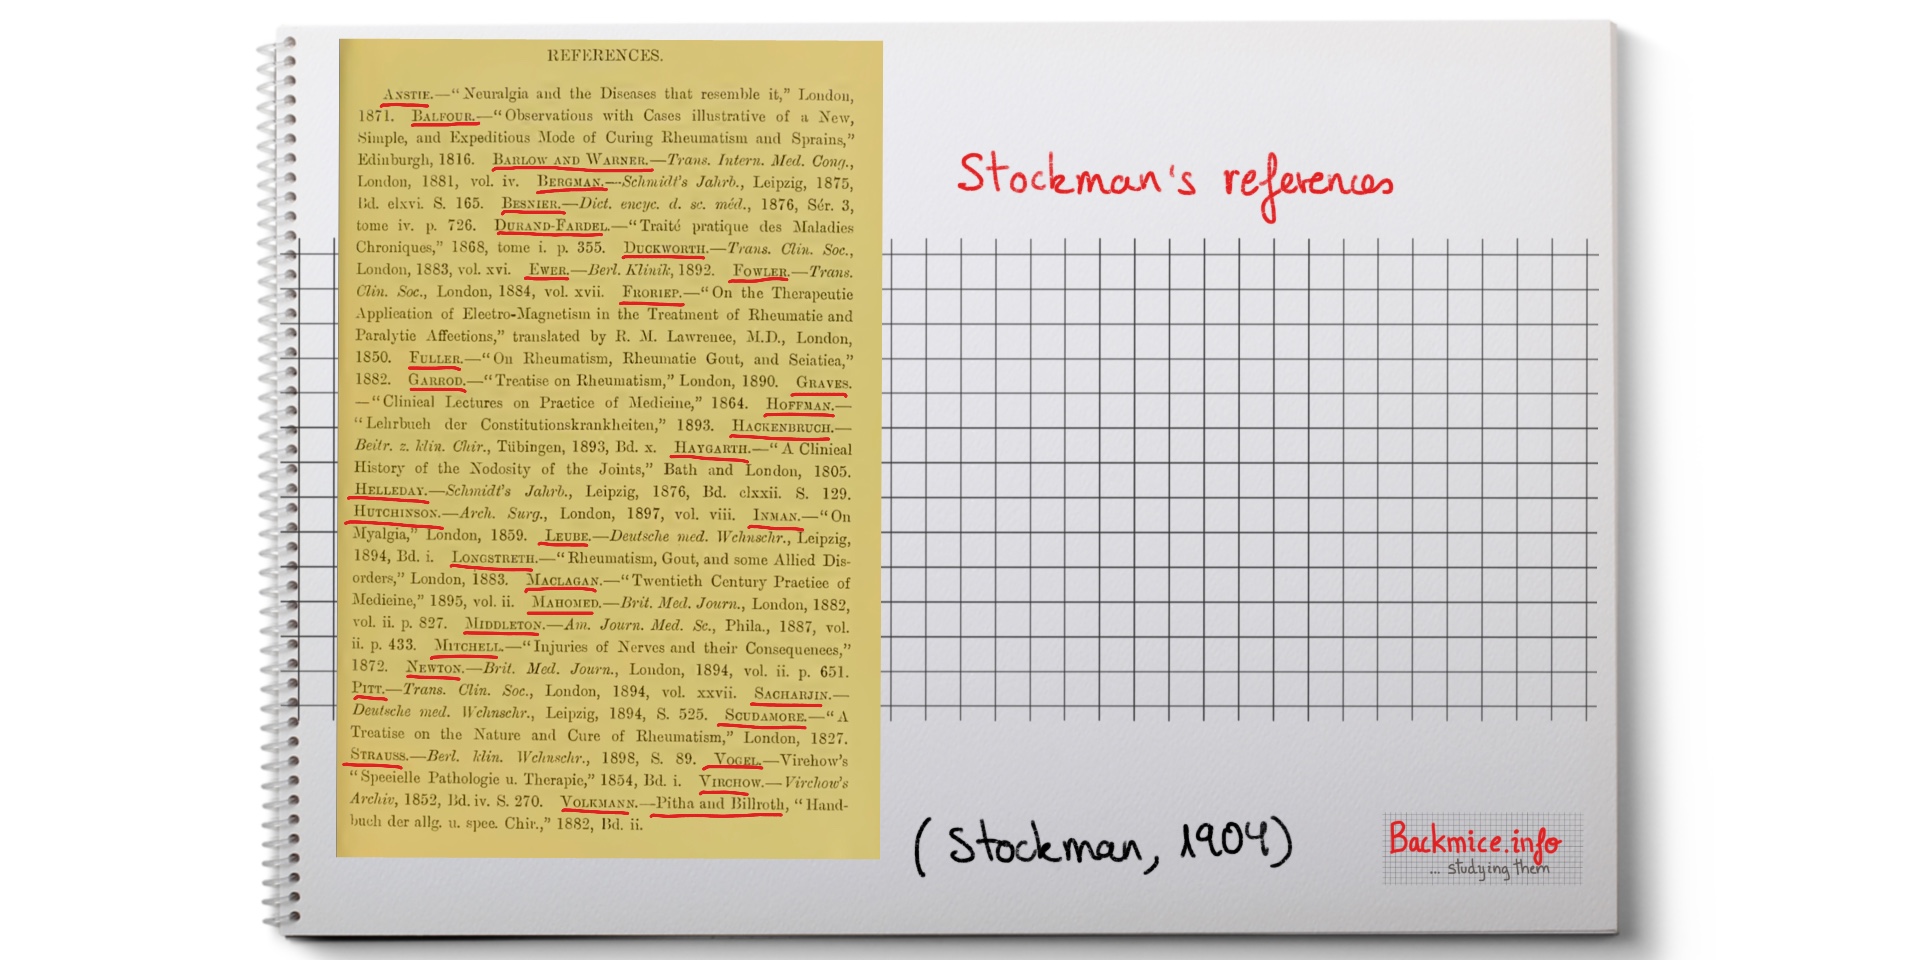 REFERENCES.
ANSTIE.—“Neuralgia and the Diseases that resemble it,” London,
1871. BALFOUR.—“Observations with Cases illustrative of a New,
Simple, and Expeditious Mode of Curing Rheumatism and Sprains,”
Edinburgh, 1816. BARLOW AND WARNER.—Trans. Intern. Med. Cong.,
London, 1881, vol. iv. BERGMAN.—Schmidt's Jahrb., Leipzig, 1875,
Bd. clxvi. S. 165. BESNIER.—Dict. encyc. d. sc. méd., 1876, Sér. 3,
tome iv. p. 726. DURAND-FARDEL.—“Traité pratique des Maladies
Chroniques,” 1868, tome i. p. 355. DUCKWORTH.—Trans. Clin. Soc.,
London, 1883, vol. xvi. EWER.—Berl. Klinik, 1892. FOWLER.—Trans.
Clin. Soc., London, 1884, vol. xvii. FRORIEP.—“On the Therapeutic
Application of Electro-Magnetism in the Treatment of Rheumatic and
Paralytic Affections,” translated by R. M. Lawrence, M.D., London,
1850. FULLER.—“On Rheumatism, Rheumatic Gout, and Sciatica,”
1882. GARROD.—“Treatise on Rheumatism,” London, 1890. GRAVES.
—“Clinical Lectures on Practice of Medicine,” 1864. HOFFMAN.—
“Lehrbuch der Constitutionskrankheiten,” 1893. HACKENBRUCH.—
Beitr. z. klin. Chir., Tübingen, 1893, Bd. x. HAYGARTH.—“A Clinical
History of the Nodosity of the Joints,” Bath and London, 1805.
HELLEDAY.—Schmidt's Jahrb., Leipzig, 1876, Bd. clxxii. S. 129.
HUTCHINSON.—Arch. Surg., London, 1897, vol. viii. INMAN.—“On
Myalgia,” London, 1859. LEUBE.—Deutsche med. Wchnschr., Leipzig,
1894, Bd. i. LONGSTRETH.—“Rheumatism, Gout, and some Allied Dis-
orders,” London, 1883. MACLAGAN.—“Twentieth Century Practice of
Medicine,” 1895, vol. ii. MAHOMED.—Brit. Med. Journ., London, 1882,
vol. ii. p. 827. MIDDLETON.—Am. Journ. Med. Sc., Phila., 1887, vol.
ii. p. 433. MITCHELL.—“Injuries of Nerves and their Consequences,”
1872. NEWTON.—Brit. Med. Journ., London, 1894, vol. ii. p. 651.
PITT.—Trans. Clin. Soc., London, 1894, vol. xxvii. SACHARJIN.—
Deutsche med. Wchnschr., Leipzig, 1894, S. 525. SCUDAMORE.—“A
Treatise on the Nature and Cure of Rheumatism,” London, 1827.
STRAUSS.—Berl. klin. Wchnschr., 1898, S. 89. VOGEL.—Virchow's
“Specielle Pathologie u. Therapie,” 1854, Bd. i. VIRCHOW.—Virchow's
Archiv, 1852, Bd. iv. S. 270. VOLKMANN.—Pitha and Billroth, “Hand-
buch der allg. u. spec. Chir.,” 1882, Bd. ii.
Stockman's references
(Stockman, 1904)
Backmice.info
... studying them